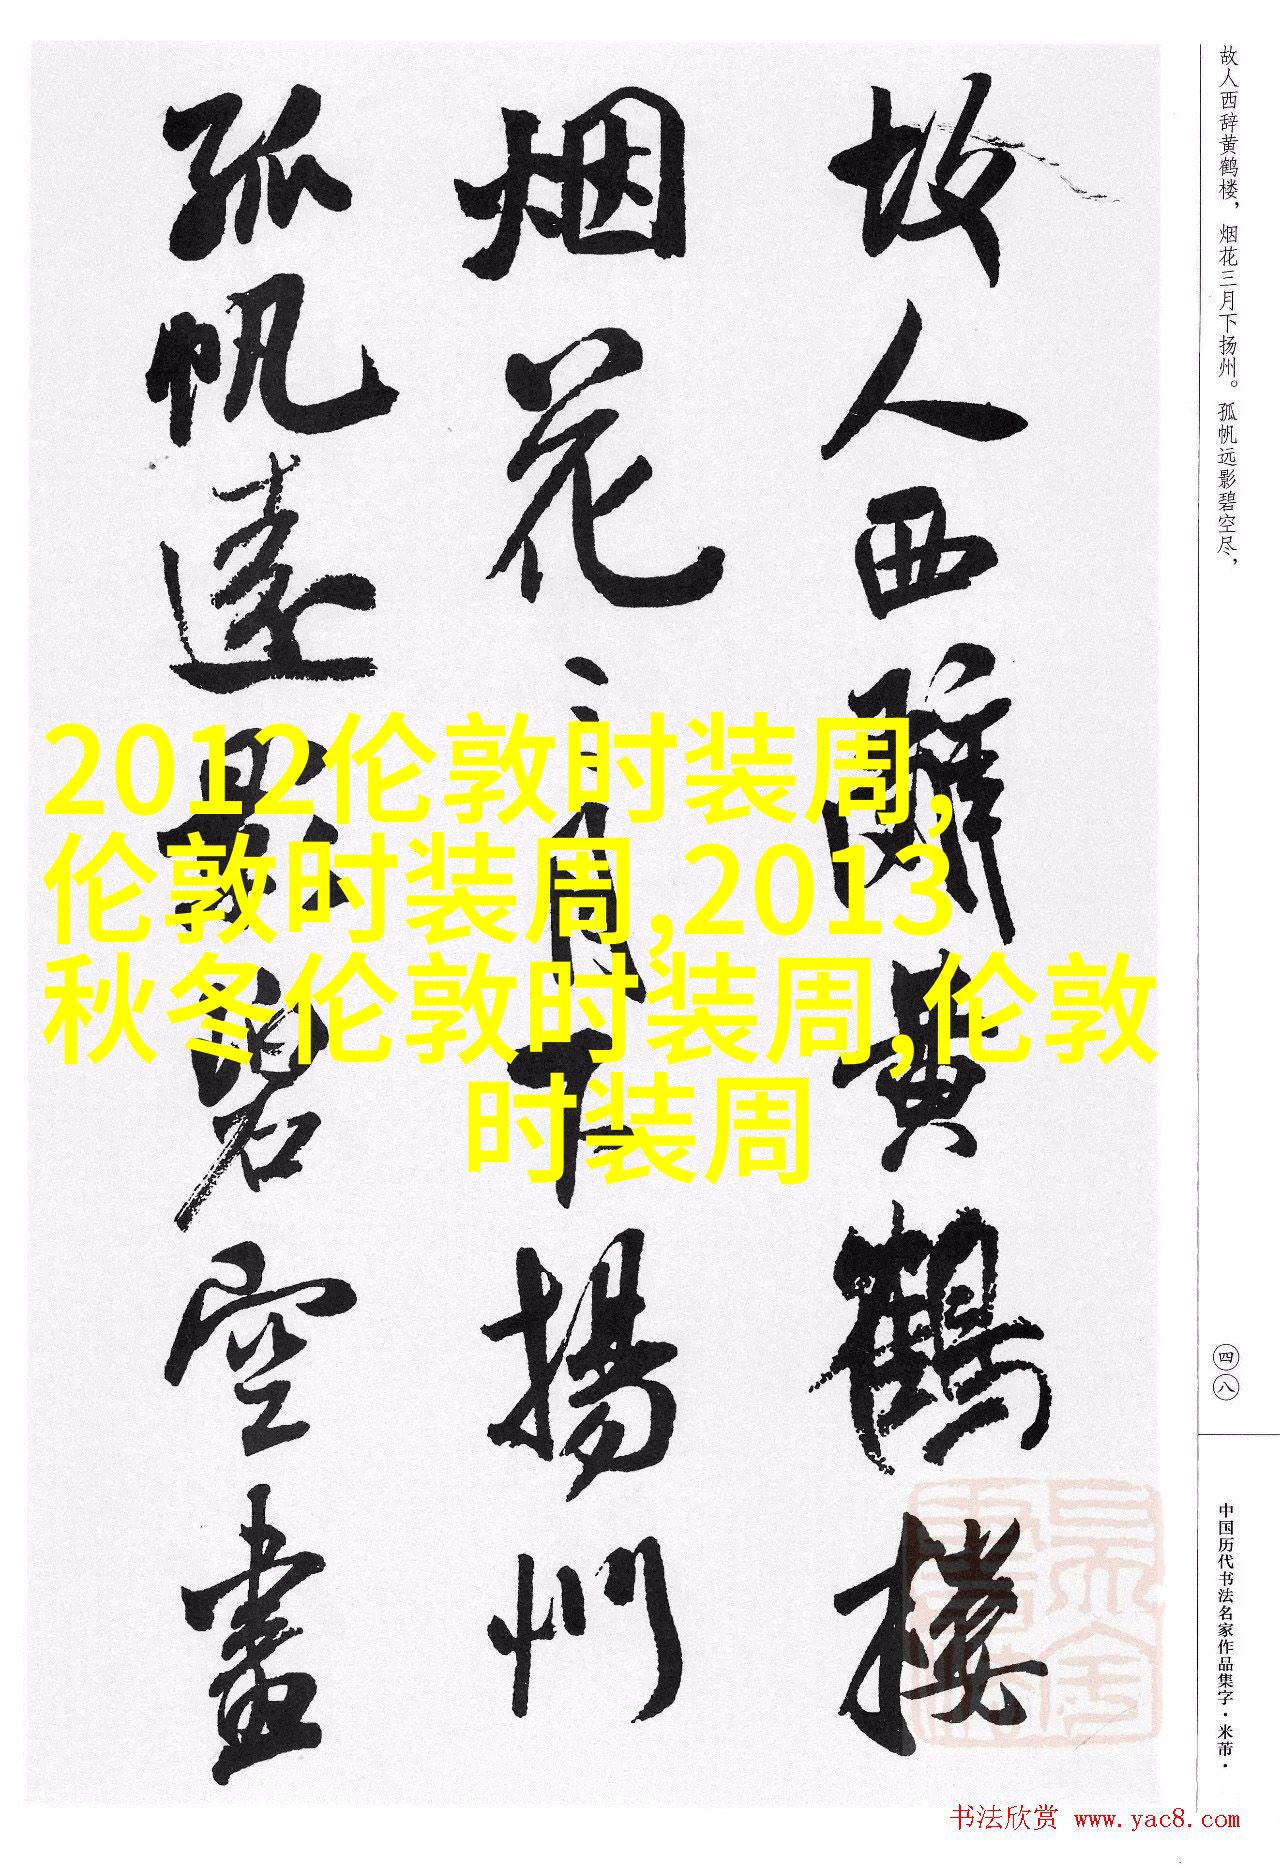 故人西辞黄鹤楼，烟花三月下扬州。孤帆远影碧空尽，
故人西辭黄鶴樓
烟花三月下揚州
孤帆遠影碧空盡
2012伦敦时装周,
伦敦时装周,2013
秋冬伦敦时装周,伦敦
时装周
四八
中国历代书法名家作品集字·米芾·
书法欣赏 www.yac8.com